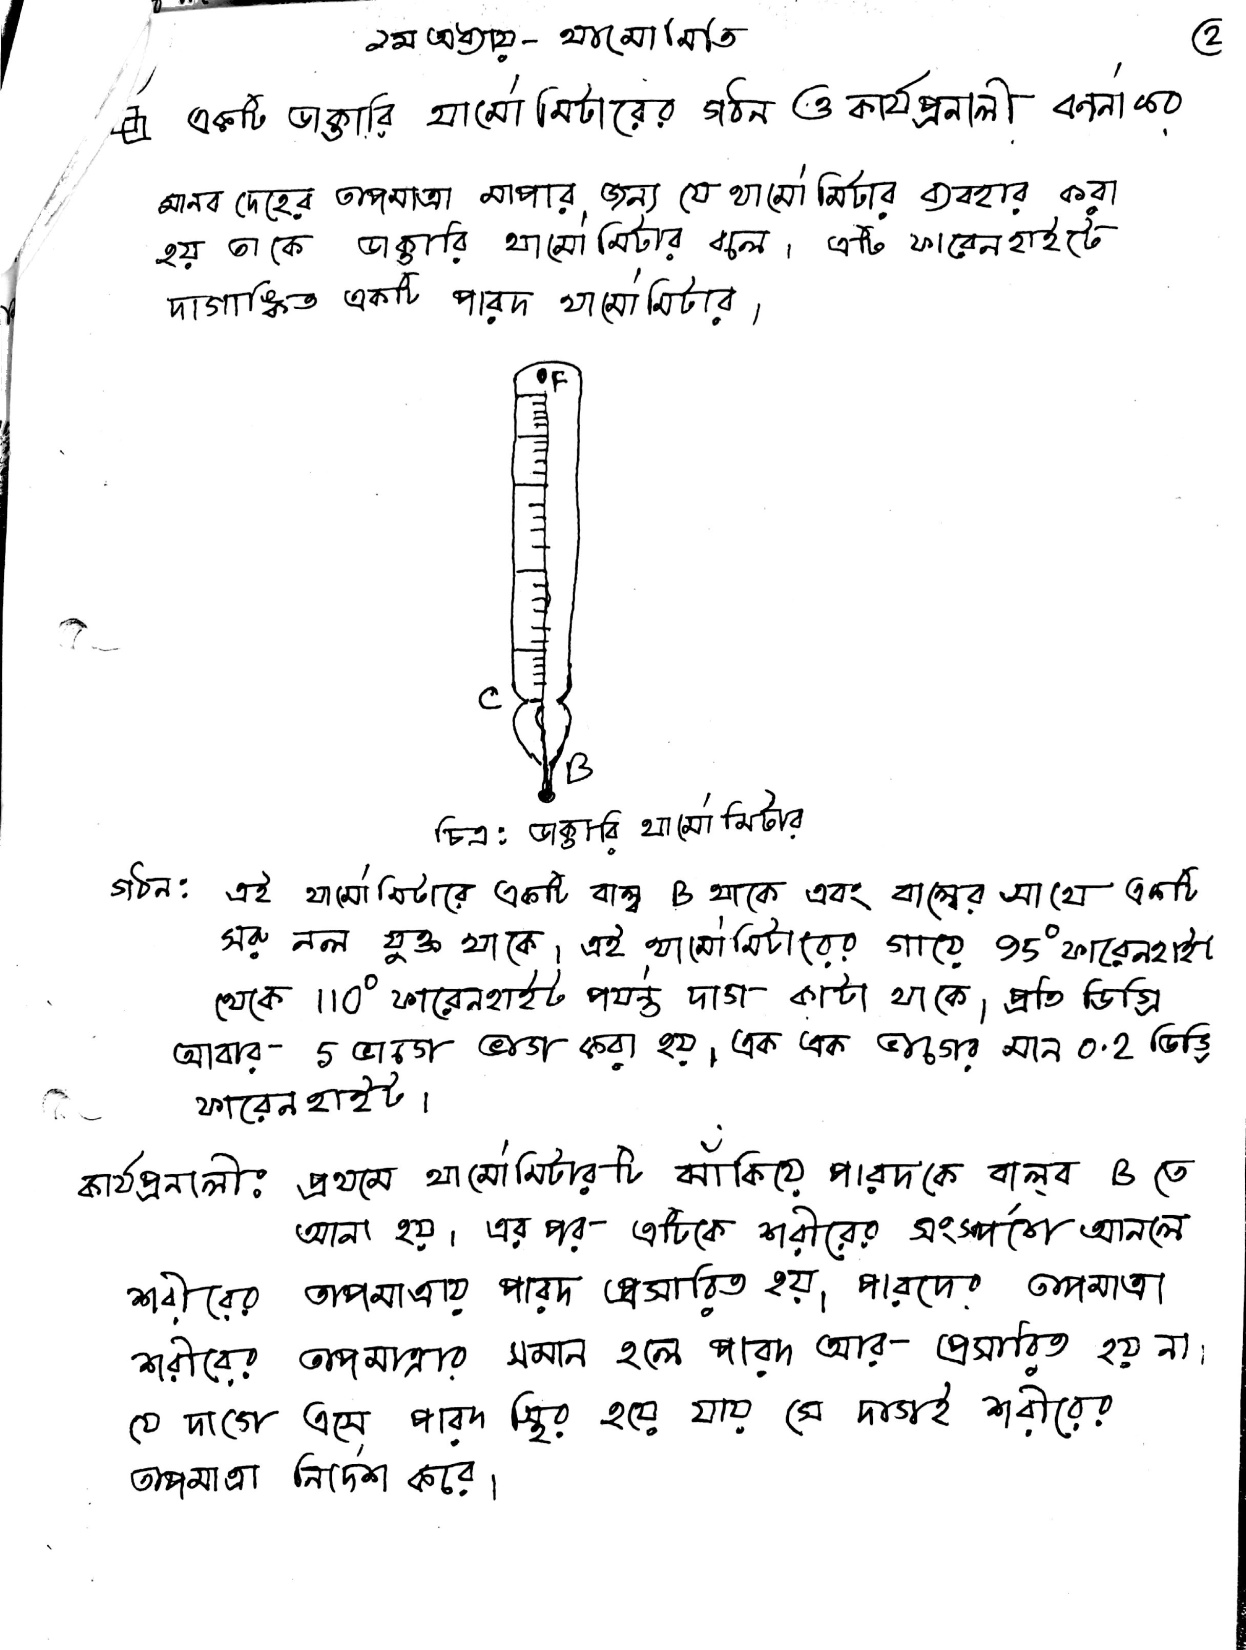 ১ম অধ্যায় - থার্মোমিতি
②
একটি ডাক্তারি থার্মোমিটারের গঠন ও কার্যপ্রনালী বর্ননা কর
মানব দেহের তাপমাত্রা মাপার জন্য যে থার্মোমিটার ব্যবহার করা
হয় তাকে ডাক্তারি থার্মোমিটার বলে। এটি ফারেনহাইটে
দাগাঙ্কিত একটি পারদ থার্মোমিটার।
F
C
B
চিত্র: ডাক্তারি থার্মোমিটার
গঠন: এই থার্মোমিটারে একটি বাল্ব B থাকে এবং বাল্বের সাথে একটি
সরু নল যুক্ত থাকে। এই থার্মোমিটারের গায়ে 95° ফারেনহাইট
থেকে 110° ফারেনহাইট পর্যন্ত দাগ কাটা থাকে। প্রতি ডিগ্রি
আবার 5 ভাগে ভাগ করা হয়। এক এক ভাগের মান 0.2 ডিগ্রি
ফারেনহাইট।
কার্যপ্রনালী: প্রথমে থার্মোমিটারটি ঝাঁকিয়ে পারদকে বাল্ব B তে
আনা হয়। এর পর এটিকে শরীরের সংস্পর্শে আনলে
শরীরের তাপমাত্রায় পারদ প্রসারিত হয়। পারদের তাপমাত্রা
শরীরের তাপমাত্রার সমান হলে পারদ আর প্রসারিত হয় না।
যে দাগে এসে পারদ স্থির হয়ে যায় সে দাগই শরীরের
তাপমাত্রা নির্দেশ করে।